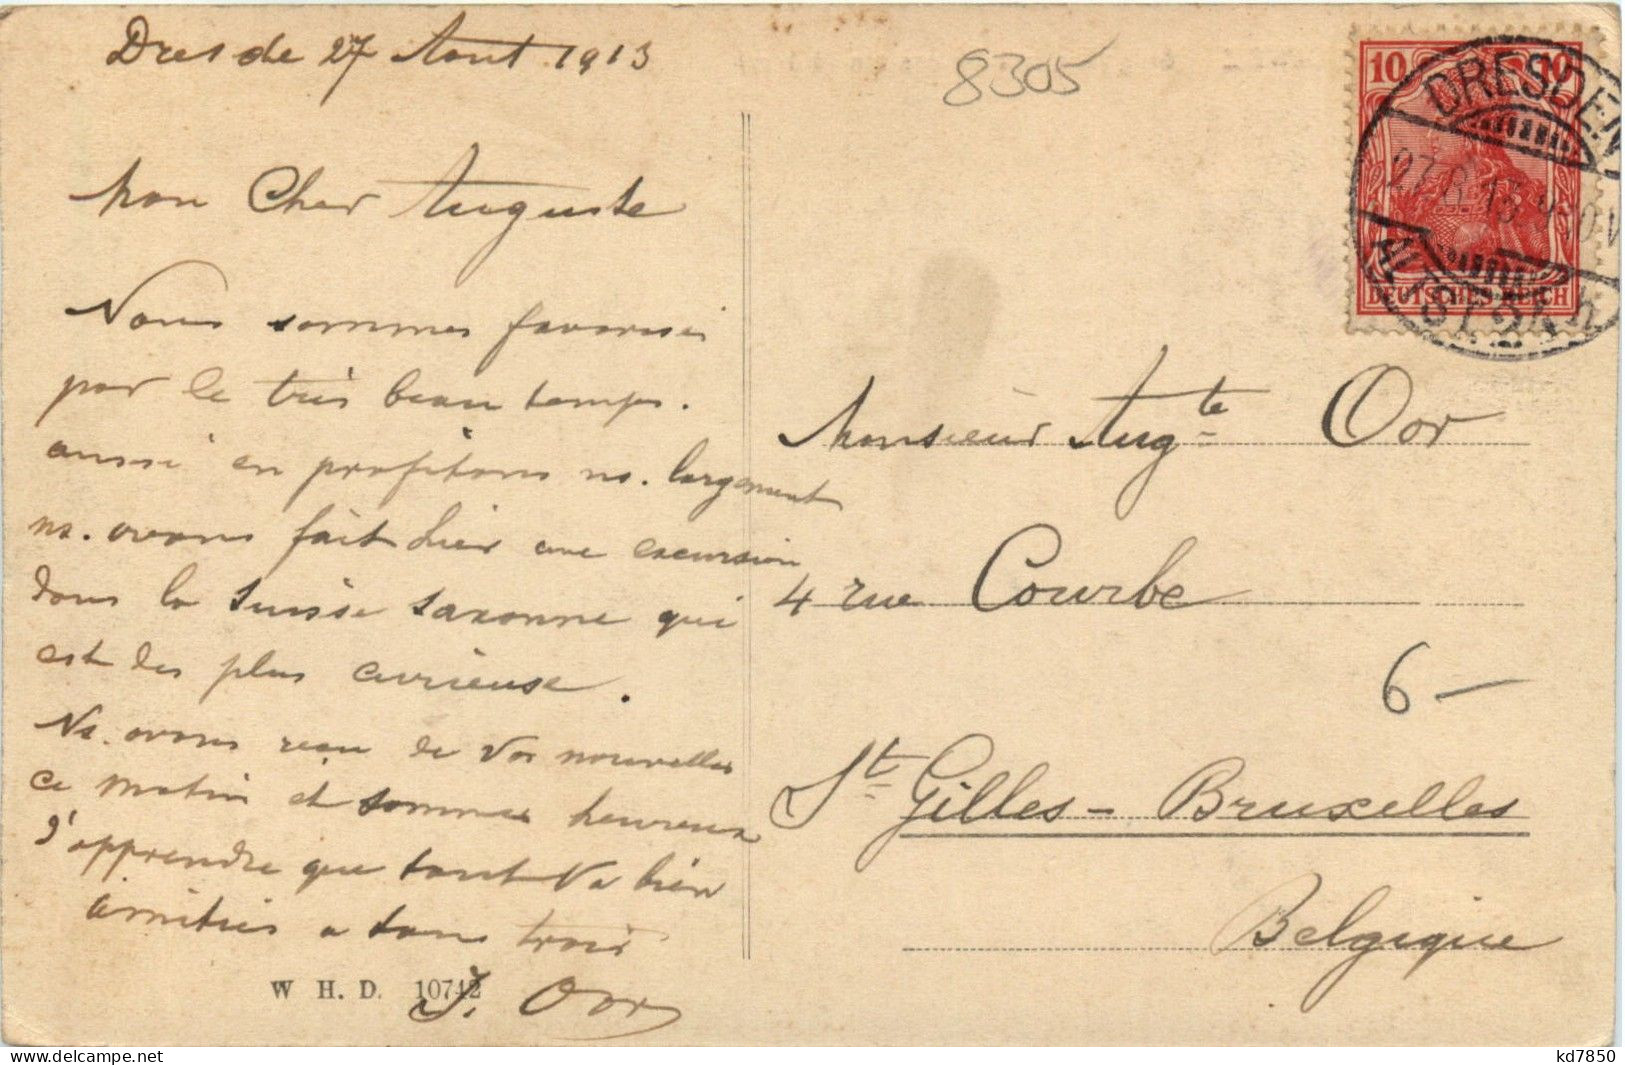 Dresde 27 Aout 1913
8305
Mon Cher Auguste
Nous sommes favorisés
par le très beau temps.
aussi en profitons ns. largement
ns. avons fait hier une excursion
dans la Suisse saxonne qui
est des plus curieuse.
Ns. avons reçu de vos nouvelles
ce matin et sommes heureux
d'apprendre que tout va bien
amitiés a tous trois
J. Oor
W H. D. 10742
10 10
DEUTSCHES REICH
DRESDEN
27.8.13
ALTST. 24
Monsieur Augte Oor
4 rue Courbe
6 —
St Gilles - Bruxelles
Belgique
kd7850
www.delcampe.net